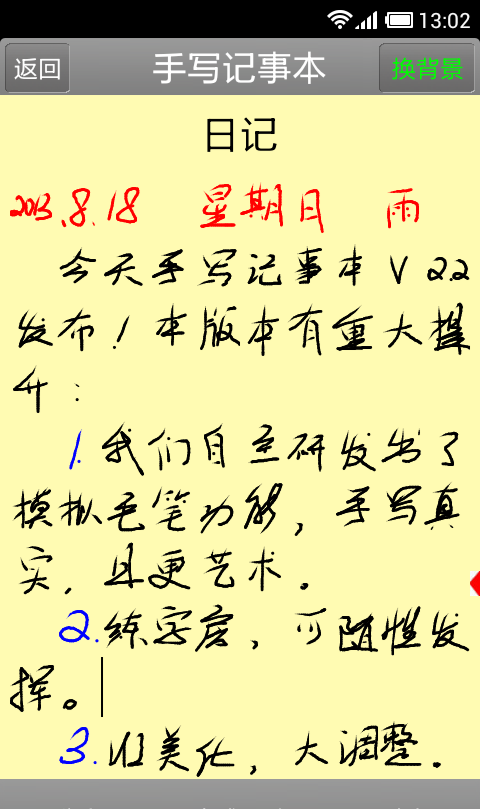 13:02
返回 手写记事本 换背景
日记
2013.8.18 星期日 雨
今天手写记事本V2.2
发布！本版本有重大提
升：
1.我们自主研发出了
模拟毛笔功能，手写真
实，且更艺术。
2.练字房，可随性发
挥。
3.UI美化，大调整。